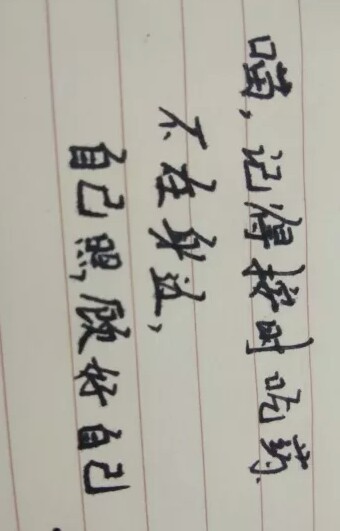 喵,记得按时吃药.
不在身边,
自己照顾好自己